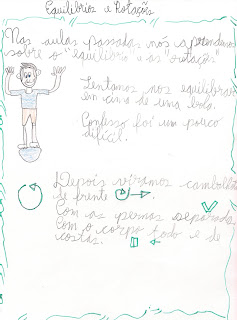 Equilíbrios e Rotações
Nas aulas passadas nós aprendemos
sobre o "equilíbrio e as rotações"
Tentamos nos equilibrar
em cima de uma bola.
Confesso foi um pouco
difícil.
Depois viramos cambolhotas
de frente
Com as pernas separadas
Com o corpo todo e de
costas.